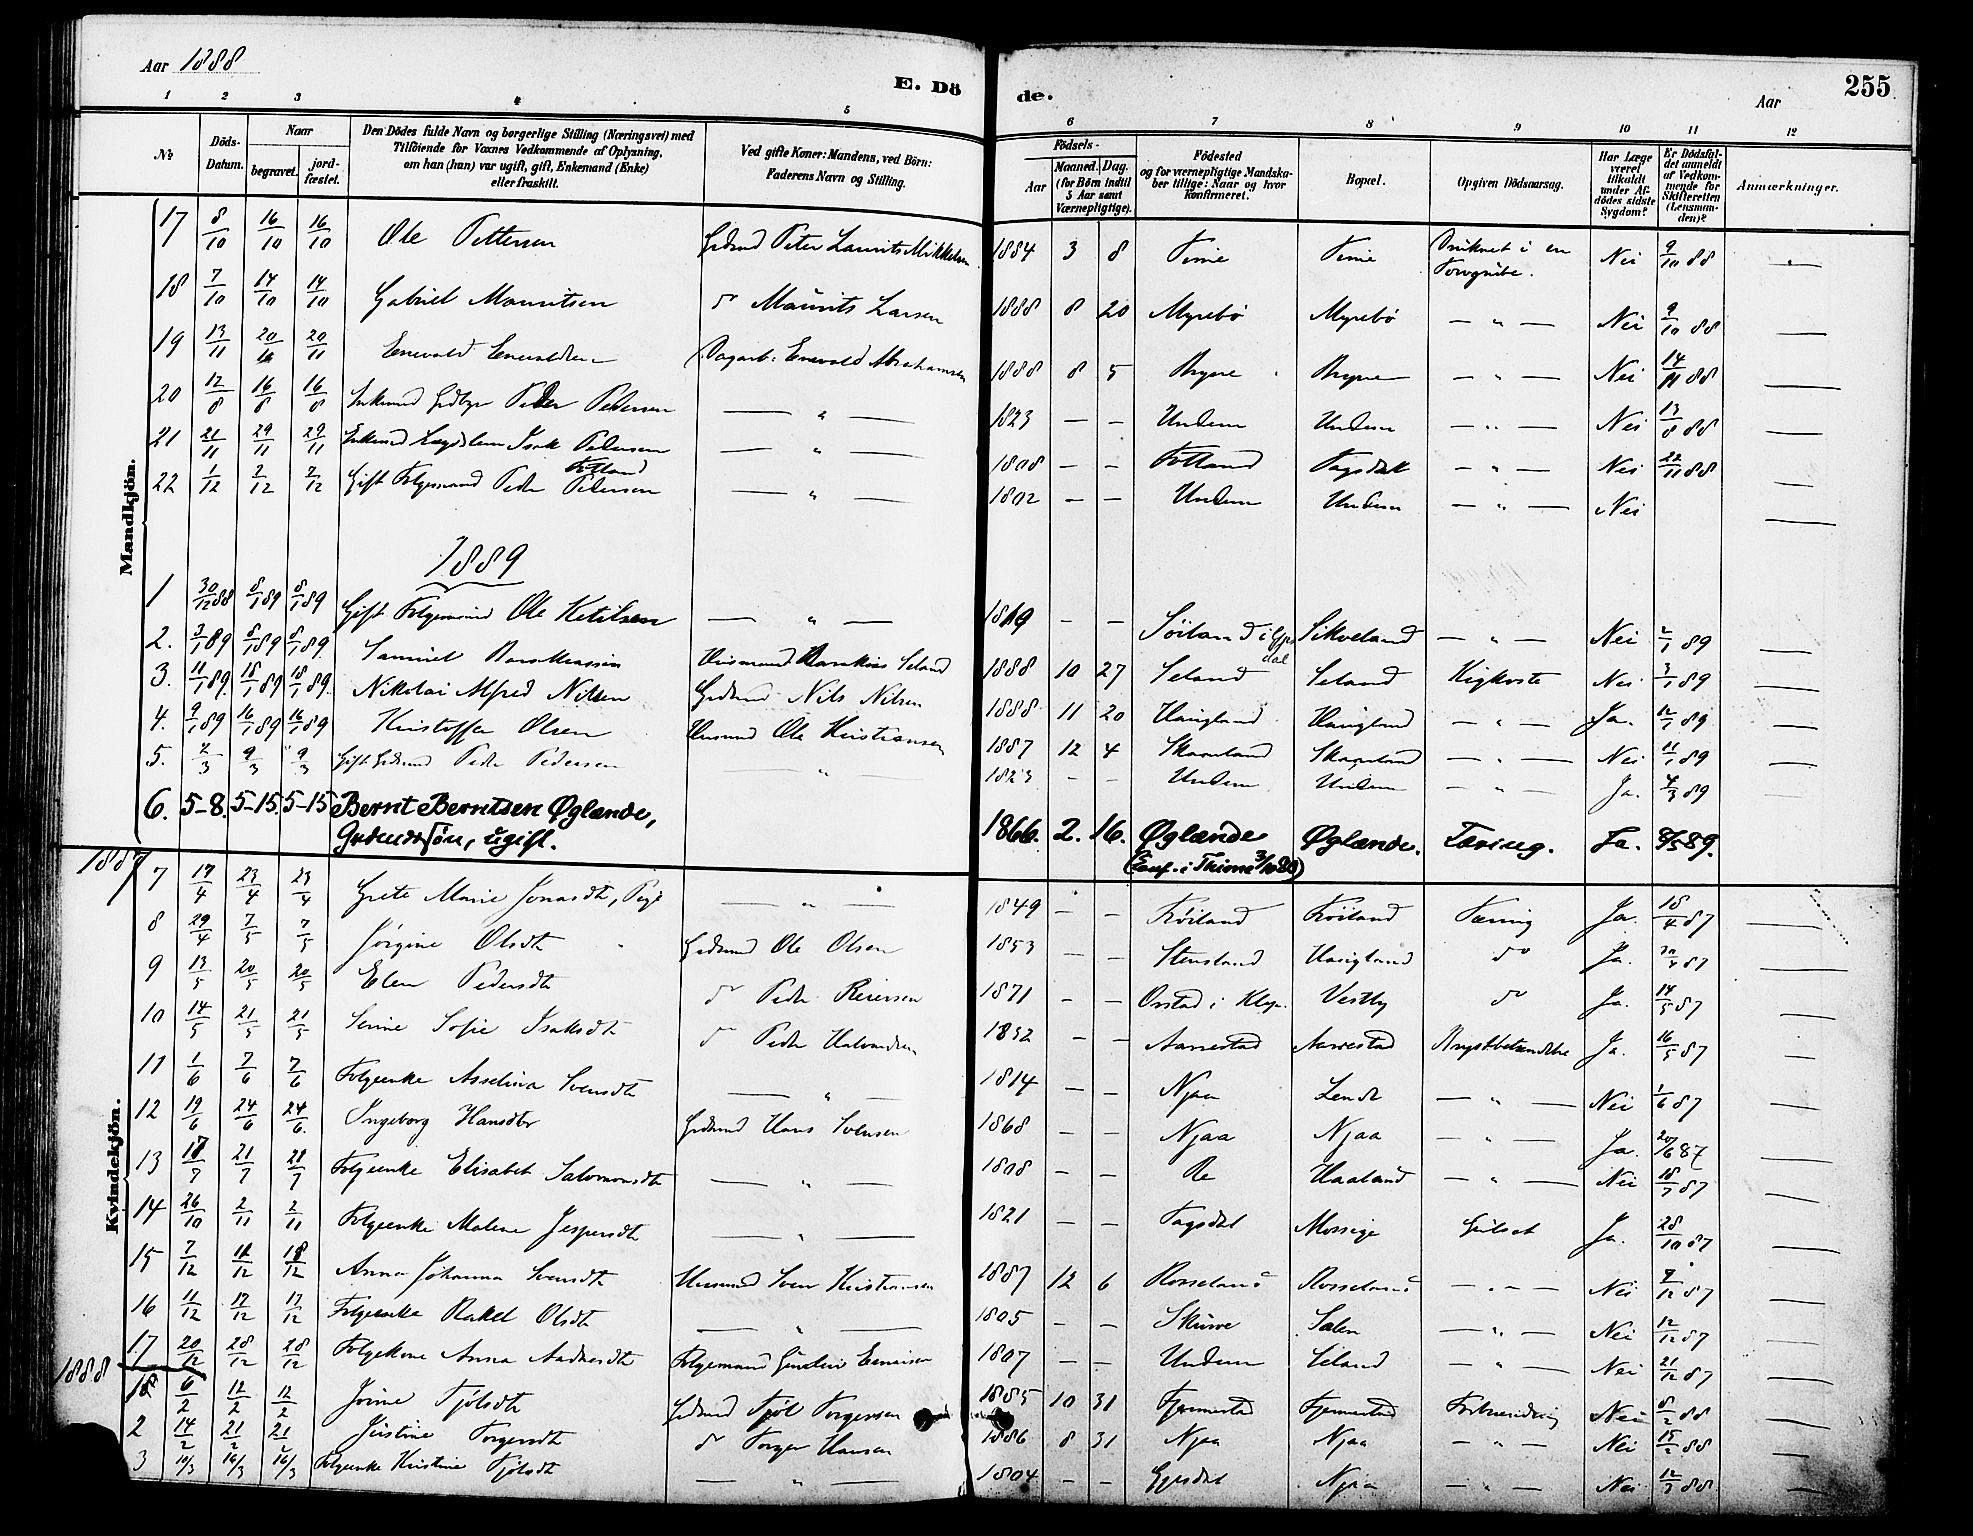 Aar 1888
E. Dö
de.
Aar
255
1 2 3 4 5 6 7 8 9 10 11 12
No
Döds-Datum.
Naar
begravet.
jord-fæstet.
Den Dödes fulde Navn og borgerlige Stilling (Næringsvei) med
Tilföiende for Voxnes Vedkommende af Oplysning,
om han (hun) var ugift, gift, Enkemand (Enke)
eller fraskilt.
Ved gifte Koner: Mandens, ved Börn:
Faderens Navn og Stilling.
Födsels-
Aar
Maaned. Dag.
(for Börn indtil
5 Aar samt
Værnepligtige).
Födested
og for værnepligtige Mandska-
ber tillige: Naar og hvor
Konfirmeret.
Bopæl.
Opgiven Dödsaarsag.
Har Læge
været
tilkaldt
under Af-
dödes sidste
Sygdom?
Er Dödsfal-
det anmeldt
af Vedkom-
mende for
Skifteretten
(Lensman-
den)?
Anmærkninger.
Mandkjön.
17 8/10 16/10 16/10 Ole Pettersen Grdmd Peter Laurits Mikkelsen 1884 3 8 Time Time Druknet i en Torvgrube. Nei 9/10 88 —
18 7/10 14/10 14/10 Gabriel Mauritsen do Maurits Larsen 1888 8 20 Myrebö Myrebö — " — Nei 9/10 88 —
19 13/11 20/11 20/11 Enevald Enevaldsen Dagarb: Enevald Abrahamsen 1888 8 5 Bryne Bryne — " — Nei 14/11 88 —
20 12/8 16/8 16/8 Enkemd Peder Pedersen — " — 1823 — — Undem Undem — " — Nei 13/8 88 —
21 21/11 29/11 29/11 Enkemd Lægdslem Isak Pedersen Fotland — " — 1808 — — Fotland Fagsdal — " — Nei 22/11 88 —
22 1/12 7/12 7/12 Gift Folgemand Peder Pedersen — " — 1802 — — Undem Undem — " — Nei —
1889
1 30/12 88 8/1 89 8/1 89 Gift Folgemand Ole Ketilsen — " — 1819 — — Söiland i Gjesdal Sikveland — " — Nei 2/1 89 —
2. 3/1 89 8/1 89 8/1 89 Samuel Barakiassen Husmand Barakias Seland 1888 10 27 Seland Seland Kighoste Nei 3/1 89 —
3. 11/1 89. 18/1 89 18/1 89. Nikolai Alfred Nilsen Grdmd Nils Nilsen 1888 11 20 Haugland Haugland — " — Ja. 12/1 89 —
4. 9/1 89 16/1 89 16/1 89 Kristoffer Olsen Husmd Ole Kristiansen 1887 12 4 Skarland Skarland — " — Nei 11/1 89 —
5. 2/3 9/3 9/3 Gift Grdmd Peder Pedersen — " — 1823 — — Undem Undem — " — Ja. 4/3 89 —
6. 5-8. 5-15. 5-15 Bernt Berntsen Øglænde, 1866. 2. 16. Øglænde Øglænde. Tæring. Ja. 8/5 89.
Grdmdssön, ugift. (Conf. i Thime
Kvindekjön.
1887
7 17/4 23/4 23/4 Grete Marie Jonasdt, Pige — " — 1849 — — Tröiland Tröiland Tæring Ja. 18/4 87 —
8 29/4 7/5 7/5 Jörgine Olsdt Grdmd Ole Olsen 1853 — — Stensland Haugland do Ja. 30/4 87 —
9 13/5 20/5 20/5 Elen Pedersdt do Peder Reiersen 1871 — — Orstad i Klep. Vestly do Ja. 14/5 87 —
10 14/5 21/5 21/5 Serine Sofie Isaksdt do Peder Halvardsen 1852 — — Aarrestad Aarrestad Brystbetændelse Ja. 16/5 87 —
11 1/6 7/6 7/6 Folgeenke Asselina Svensdt — " — 1814 — — Njaa Lende — " — Nei 1/6 87 —
12 19/6 24/6 24/6. Ingeborg Hansdtr Grdmd Hans Svensen 1868 — — Njaa Njaa — " — Ja. 20/6 87 —
13 17/7 21/7 21/7 Folgeenke Elisabet Salomonsdt — " — 1808 — — Re Haaland — " — Nei 18/7 87 —
14 26/10 2/11 2/11 Folgeenke Malene Jespersdt — " — 1821 — — Fagsdal Mossige Gulsot Ja. 28/10 87 —
15 7/12 18/12 Anna Johanna Svensdt Husmand Sven Kristiansen 1887 12 6 Rosseland Rosseland — " — Nei 9/12 87 —
16 11/12 17/12 17/12 Folgeenke Rakel Olsdt — " — 1805 — — Skurve Salen — " — Nei 12/12 87 —
17 20/12 28/12 28/12 Folgekone Anna Aadnesdt Folgemand 1807 — — Undem Seland — " — Nei 21/12 87 —
1888
1 6/2 12/2 12/2 Jorine Tjölsdt Grdmd Tjöl Torgersen 1885 10 31 Fjermestad Fjermestad Nei 8/2 88 —
2 14/2 21/2 21/2 Justine Torgersdt do Torger Hansen 1886 8 31 Njaa Njaa — " — Nei 15/2 88 —
3 10/3 16/3 16/3 Folgeenke Kristine Tjölsdt — " — 1804 — — Gjesdal Njaa — " — Nei 12/3 88 —